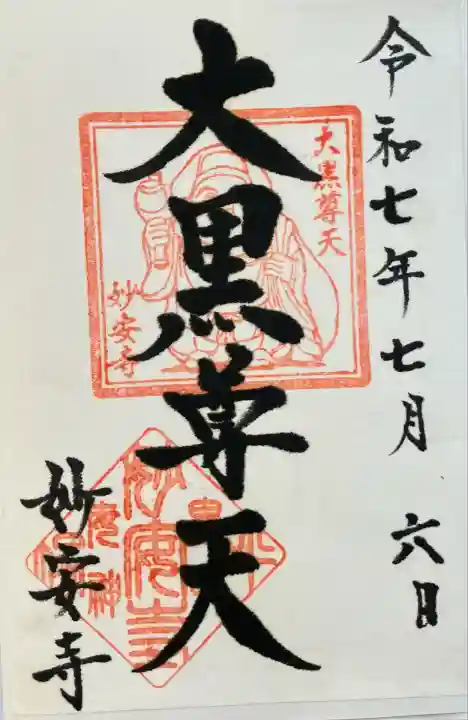 令和七年七月 六日
大黒尊天
妙安寺
大黒尊天
妙安寺
妙安寺